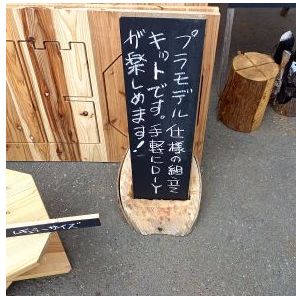 プラモデル仕様の組立て
キットです。手軽にDIY
が楽しめます!
レギュラーサイズ